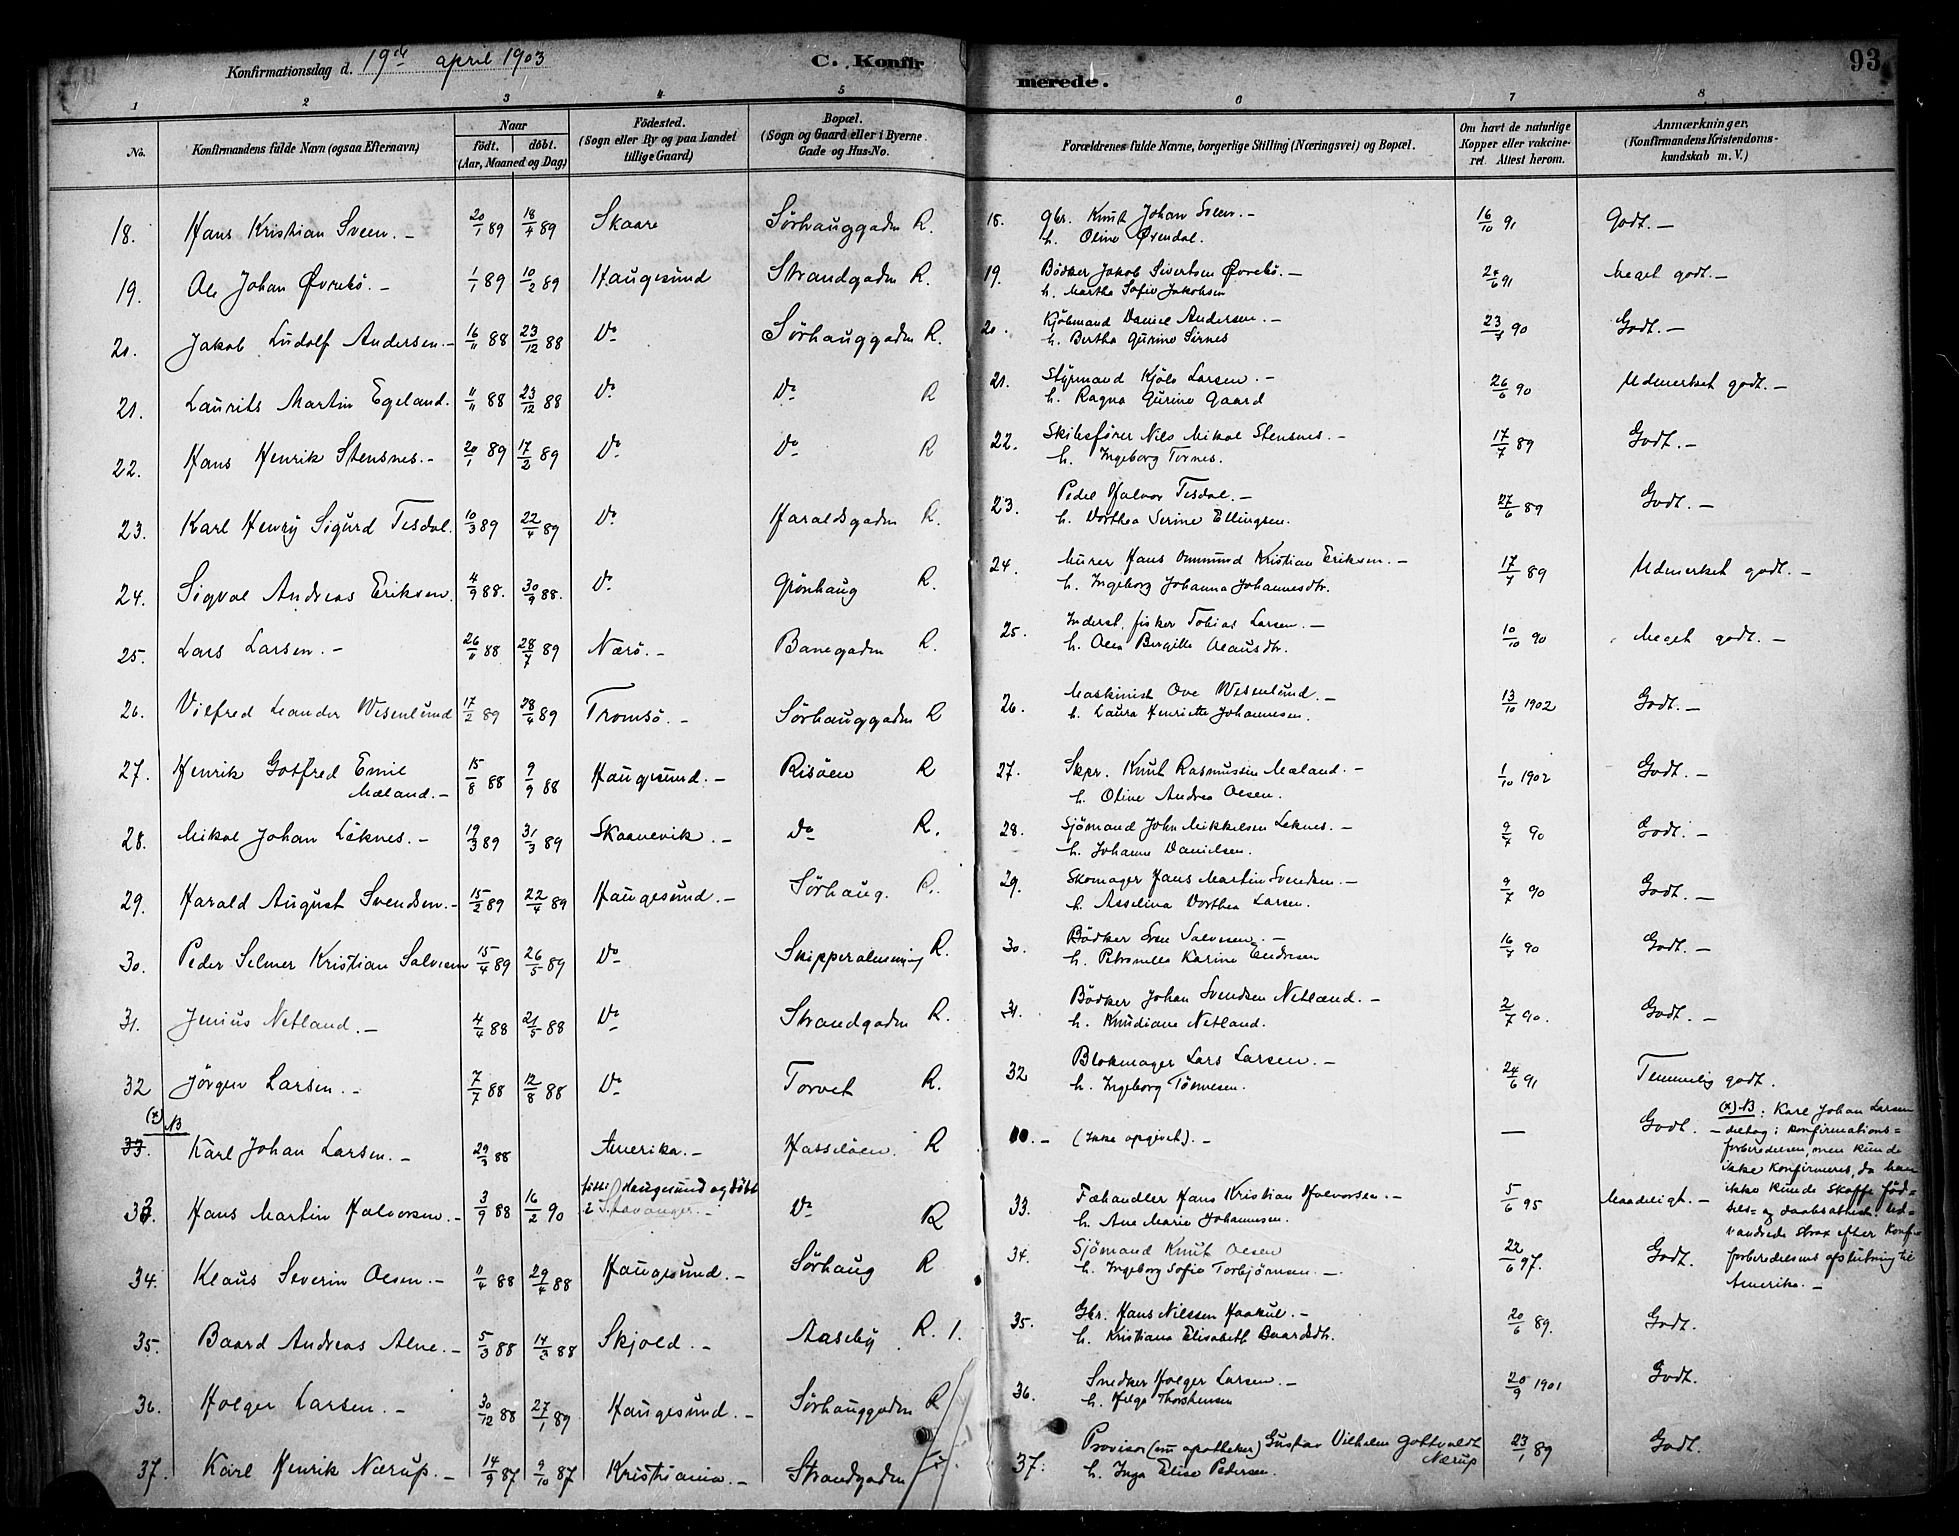 Konfirmationsdag d. 19de april 1903
C. Konfirmerede.
93
1 2 3 4 5 6 7 8
No.
Konfirmandens fulde Navn (ogsaa Efternavn)
Naar
født. døbt.
(Aar, Maaned og Dag)
Fødested.
(Sogn eller By og paa Landet
tillige Gaard)
Bopæl.
(Sogn og Gaard eller i Byerne
Gade og Hus-No.
Forældrenes fulde Navne, borgerlige Stilling (Næringsvei) og Bopæl.
Om havt de naturlige
Kopper eller vakcine-
ret. Attest herom.
Anmærkninger.
(Konfirmandens Kristendoms-
kundskab m. V.)
18. Hans Kristian Sveen. – 20/1 89 18/4 89 Skaare Sørhauggaden R. 18. Gbr. Knut Johan Sveen. – 16/10 91 Godt. –
h. Oline Øvendal.
19. Ole Johan Øvrebö. – 1/1 89 10/2 89 Haugesund Strandgaden R. 19. Bødker Jakob Sivertsen Øvrebö. – 24/6 91 Meget godt. –
h. Martha Sofie Jakobsen
20. Jakob Ludolf Andersen. – 16/11 88 23/12 88 Do Sørhauggaden R. 20. Kjøbmand Daniel Andersen. – 23/7 90 Godt. –
h. Bertha Gurine Sirnes
21. Laurits Martin Egeland. 11/11 88 23/12 88 Do Do R 21. Styrmand Kjöls Larsen. – 26/6 90 Udmerket godt. –
h. Ragna Gurine Gaard
22. Hans Henrik Stensnes. – 20/1 89 17/2 89 Do Do R 22. Skibsfører Nils Mikal Stensnes. – 17/7 89 Godt. –
h. Ingeborg Tornes.
23. Karl Henry Sigurd Tesdal. 10/3 89 22/4 89 Do Haraldsgaden R. 23. Peder Halvor Tesdal. – 27/6 89 Godt. –
h. Dorthea Serine Ellingsen.
24. Sigval Andreas Eriksen. 4/9 88. 30/9 88. Do Grönhaug R. 24. Murer Hans Ommund Kristian Eriksen. – 17/7 89 Udmerket godt. –
h. Ingeborg Johanna Johannesdtr.
25. Lars Larsen. – 26/11 88 28/7 89 Nærö. – Banegaden R. 25. Inderst, fisker Tobias Larsen. – 10/10 90 Meget godt. –
h. Olea Bergitte Olausdtr.
26. Vilfred Leander Wesenlund 17/2 89 28/4 89 Tromsö. – Sörhauggaden R 26. Maskinist Ove Wesenlund. – 13/10 1902 Godt. –
h. Laura Henriette Johannesen.
27. Henrik Gotfred Emil 15/8 88 9/9 88 Haugesund. – Risöen R 27. Skpr. Knut Rasmussen Mæland. – 1/10 1902 Godt. –
Mæland. – h. Oline Andrea Olsen.
28. Mikal Johan Leknes. – 19/3 89 31/3 89 Skaanevik. – Do R. 28. Sjömand John Mikkelsen Leknes. – 9/7 90 Godt. –
h. Johanne Danielsen.
29. Harald August Svendsen. – 15/2 89 22/4 89 Haugesund. – Sörhaug. R. 29. Skomager Hans Martin Svendsen. – 9/7 90 Godt. –
h. Asselina Dorthea Larsen.
30. Peder Selmer Kristian Salvesen 15/4 89 26/5 89 Do R. 30. Bödker Sven Salvesen. – 16/7 90 Godt. –
h. Petronelle Karine Endresen
31. Jenius Netland. – 4/4 88 21/5 88 Do Strandgaden R. 31. Bödker Johan Svendsen Netland. – 2/7 90. Godt. –
h. Knudiane Netland.
32 Jörgen Larsen. – 7/7 88 12/8 88 Do Torvet R. 32 Blokmager Lars Larsen. – 24/6 91 Temmelig godt.
h. Ingeborg Tönnesen.
(x) NB
33. Karl Johan Larsen. – 29/3 88 Amerika. – Hasselöen. R – (Ikke opgivet). – — Godt. –
(x) NB: Karl Johan Larsen
deltog i konfirmations-
forberedelsen, men kunde
ikke konfirmeres, da han
ikke kunde skaffe föd-
sels- og daabsattest. Ud-
vandrede strax efter konf-
forberedelsens afslutning til
Amerika. –
33. Hans Martin Halvorsen. – 3/9 88 16/2 90 født i Haugesund og døbt
i Stavanger. – Do R 33. Fæhandler Hans Kristian Halvorsen. – 5/6 95 Maadeligt. –
h. Ane Marie Johannesen.
34. Klaus Severin Olsen. – 11/4 88 29/4 88 Haugesund. – Sörhaug R 34. Sjömand Knut Olsen 22/6 97. Godt.
h. Ingeborg Sofie Torbjörnsen. –
35. Baard Andreas Alne. – 5/3 88 14/3 88 Skjold. – Aaseby R. 1. 35. Gbr. Hans Nilssen Haakul. – 20/6 89. Godt.
h. Kristiana Elisabeth Baardsdtr.
36. Holger Larsen. – 30/12 88 27/1 89 Haugesund. – Sörhauggaden R 36. Snedker Holger Larsen. – 20/9 1901 Godt.
h. Helga Thorstensen
37. Karl Henrik Nærup. – 14/9 87 9/10 87 Kristiania. – Strandgaden 37. Provisor (nu apotheker) Gustav Vilhelm Gottvaldt 23/1 89 Godt.
Nærup
h. Inga Elise Pedersen.